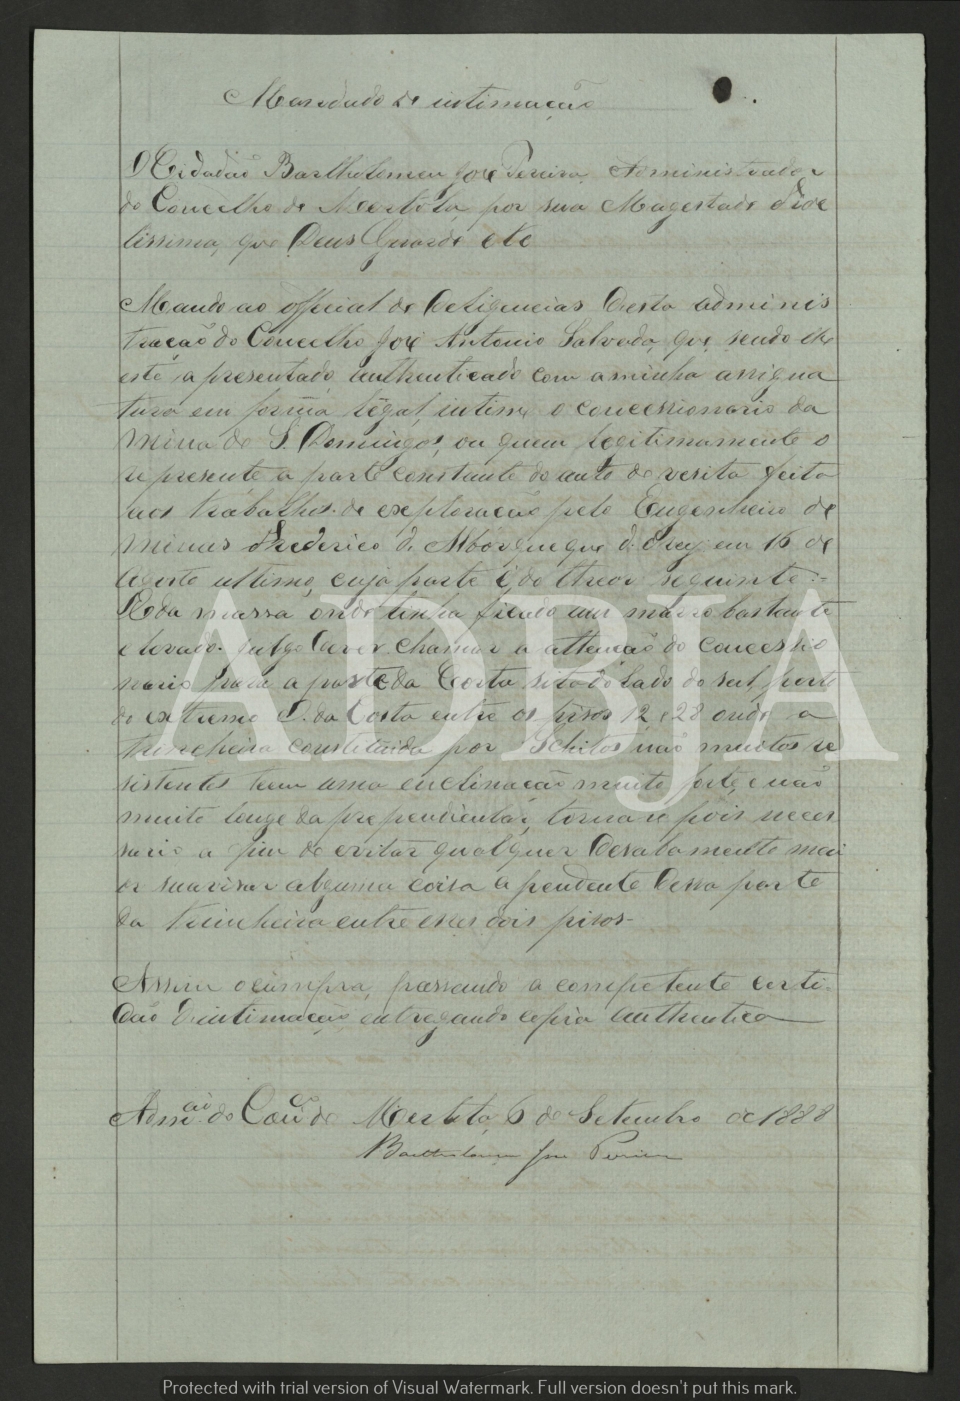 Mandado de intimação
O Cidadão Bartholomeu José Pereira, Administrador
do Concelho de Mertola, por sua Magestade Fide
lissima, que Deus Guarde etc
Mando ao official de Deligencias desta adminis
tração do Concelho José Antonio Salvada, que, sendo lhe
este apresentado, authenticado com a minha assigna
tura em forma legal, intime o concessionario da
Mina de S. Domingos, ou quem legitimamente o
represente a parte constante do auto de vesita feita
aos trabalhos de exploração pelo Engenheiro de
Minas Frederico de Albuquerque d'Orey em 16 de
Agosto ultimo, cuja parte é do theor seguinte:-
Na massa onde tenha ficado um macio bastante
elevado. Julgo dever chamar a attenção do concessio
nario para a parte da Corta sita do lado do sul, perto
do extremo E. da Corta entre os pisos 12 e 28 onde a
trincheira constituida por Schistos não muitos re
sistentes tem uma enclinação muito forte, e não
muito longe da prependicular, torna-se pois neces
sario a fim de evitar qualquer desabamento mai
or suavisar alguma coisa a pendente dessa parte
da trincheira entre esses dois pisos-
Assim o cumpra, passando a competente certi-
dão d'intimação entregando copia authentica
Admᵃᶜᵃᵒ do Conᶜ de Mertola, 6 de Setembro de 1888
Bartholomeu José Pereira
ADBJA
Protected with trial version of Visual Watermark. Full version doesn't put this mark.